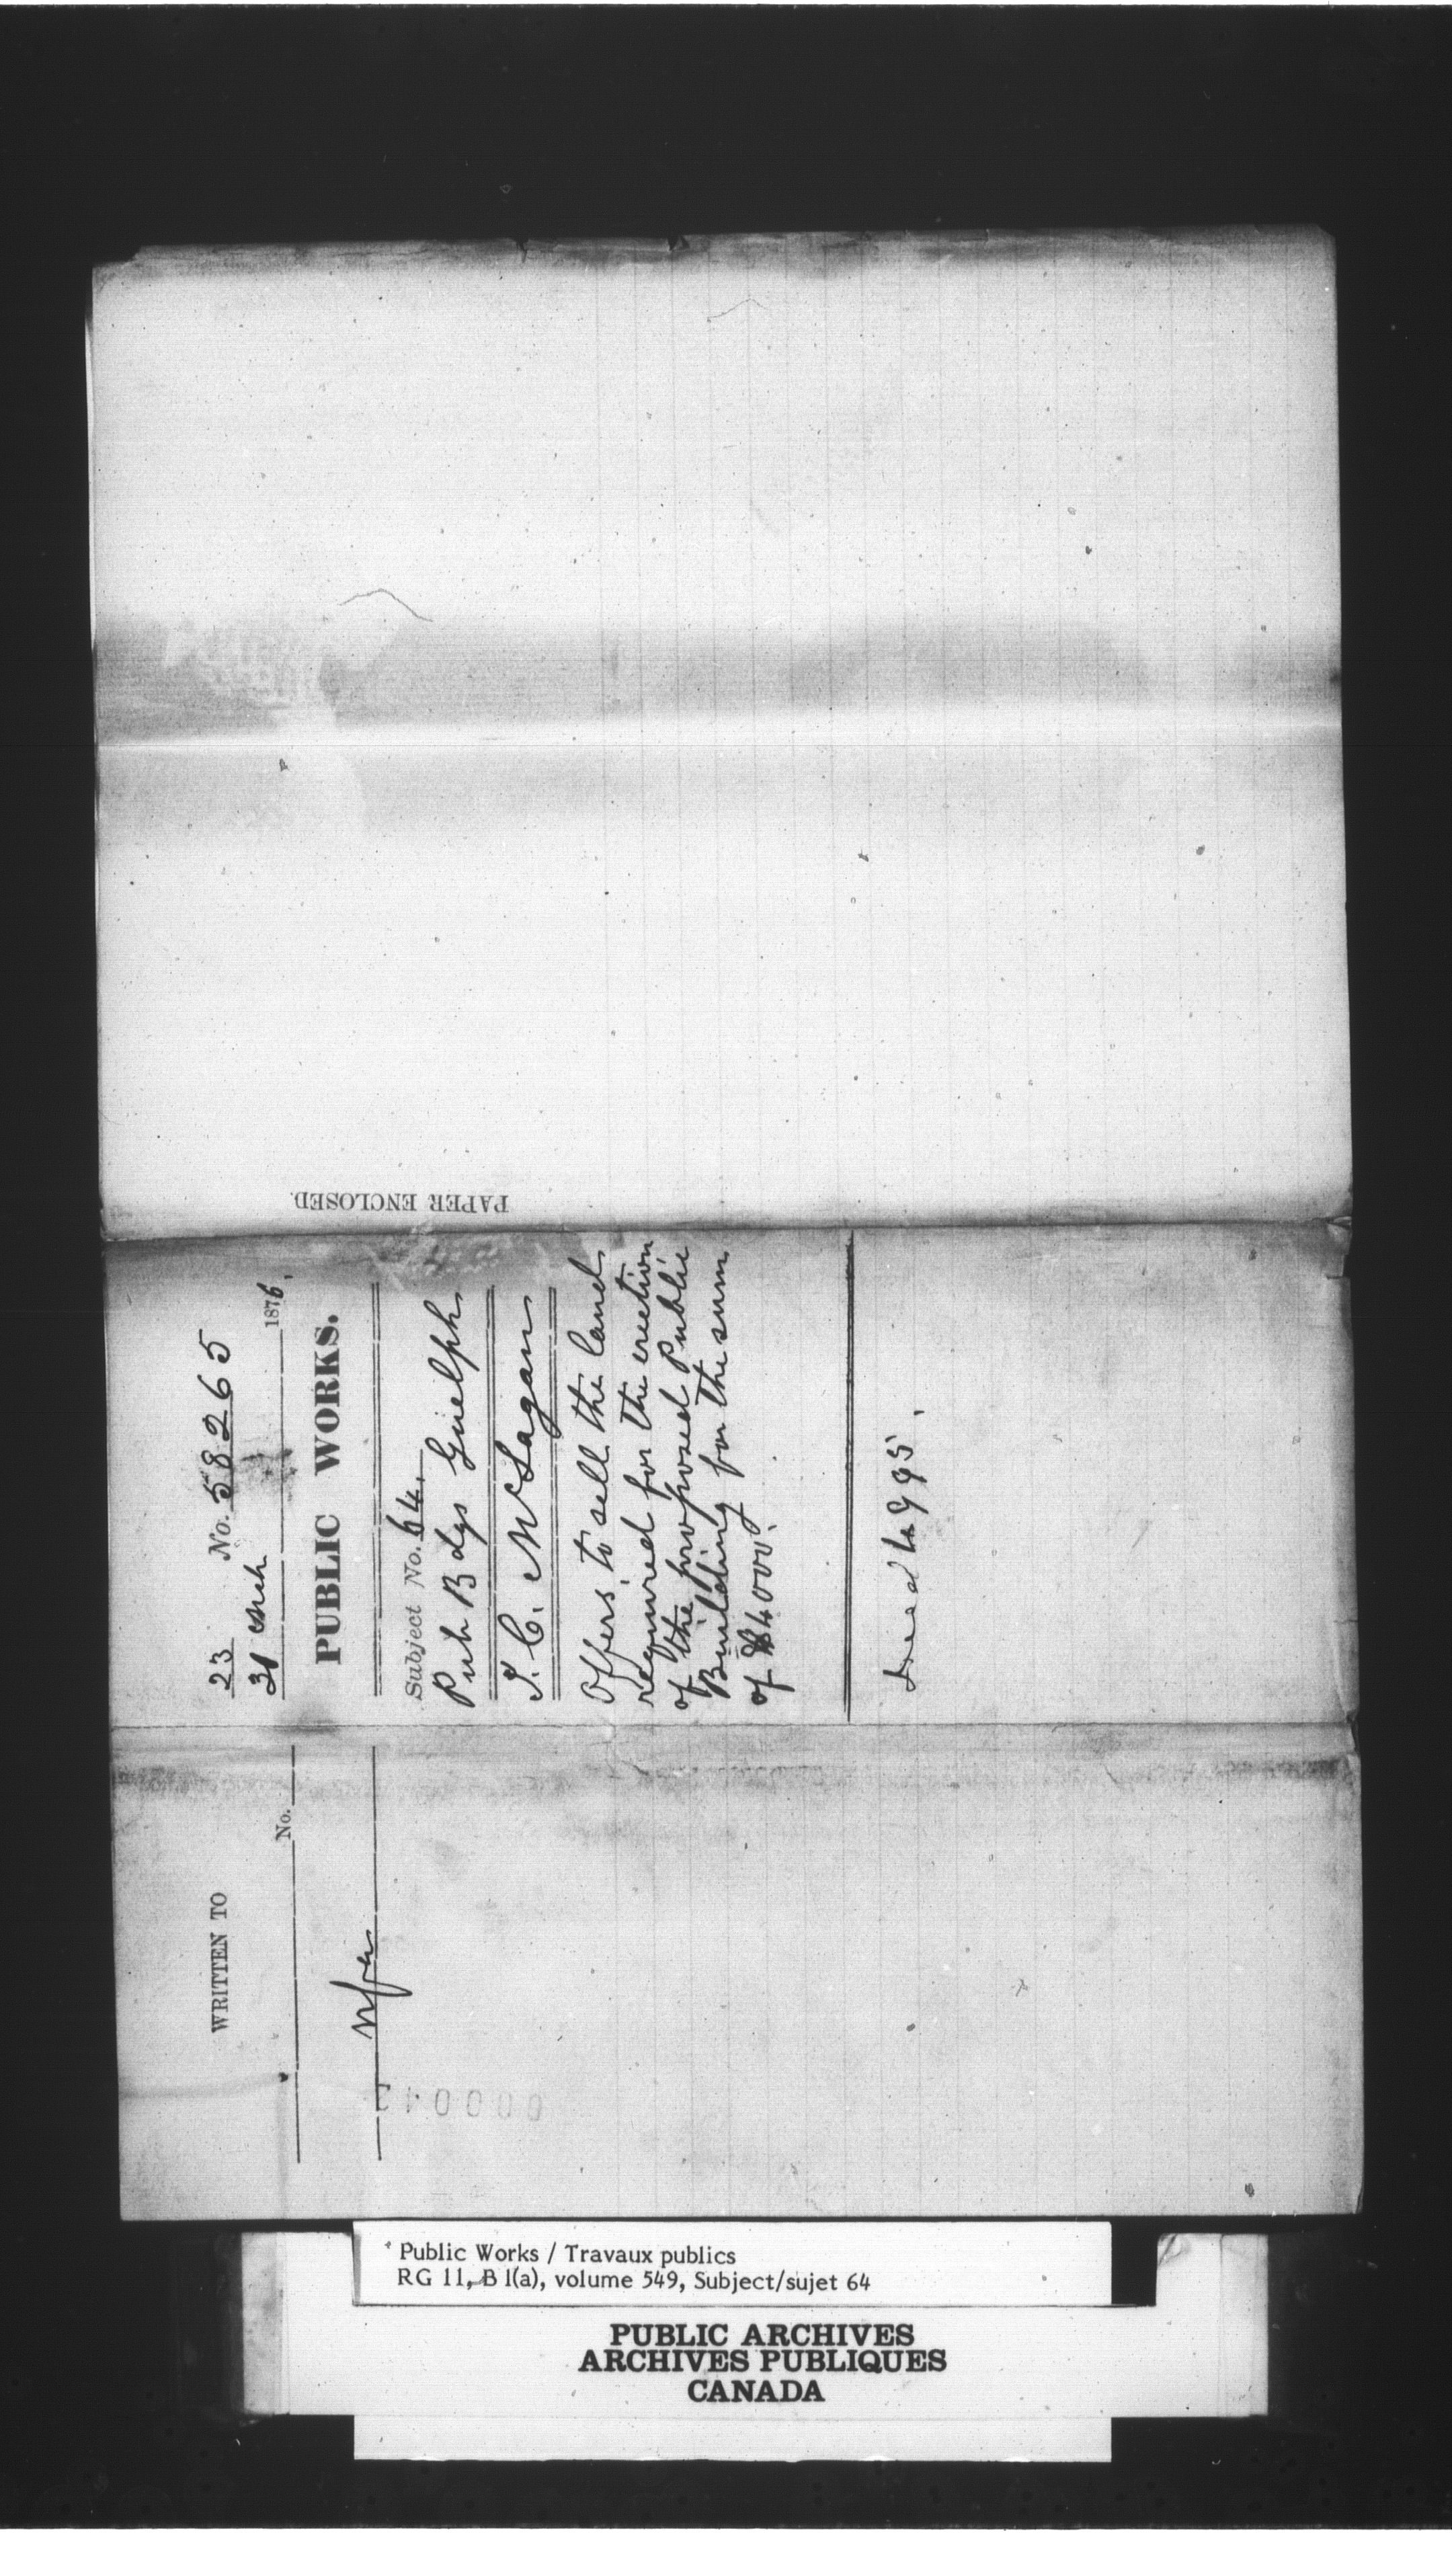 PAPER ENCLOSED.
23 No. 58265
31 Mch 1876.
PUBLIC WORKS.
Subject No. 64.
Pub Bdgs Guelph
J. C. McLagan
Offers to sell the land
required for the erection
of the proposed Public
Building for the sum
of $4000.
Deed 4995.
WRITTEN TO
No.
Public Works / Travaux publics
RG 11, B 1(a), volume 549, Subject/sujet 64
PUBLIC ARCHIVES
ARCHIVES PUBLIQUES
CANADA